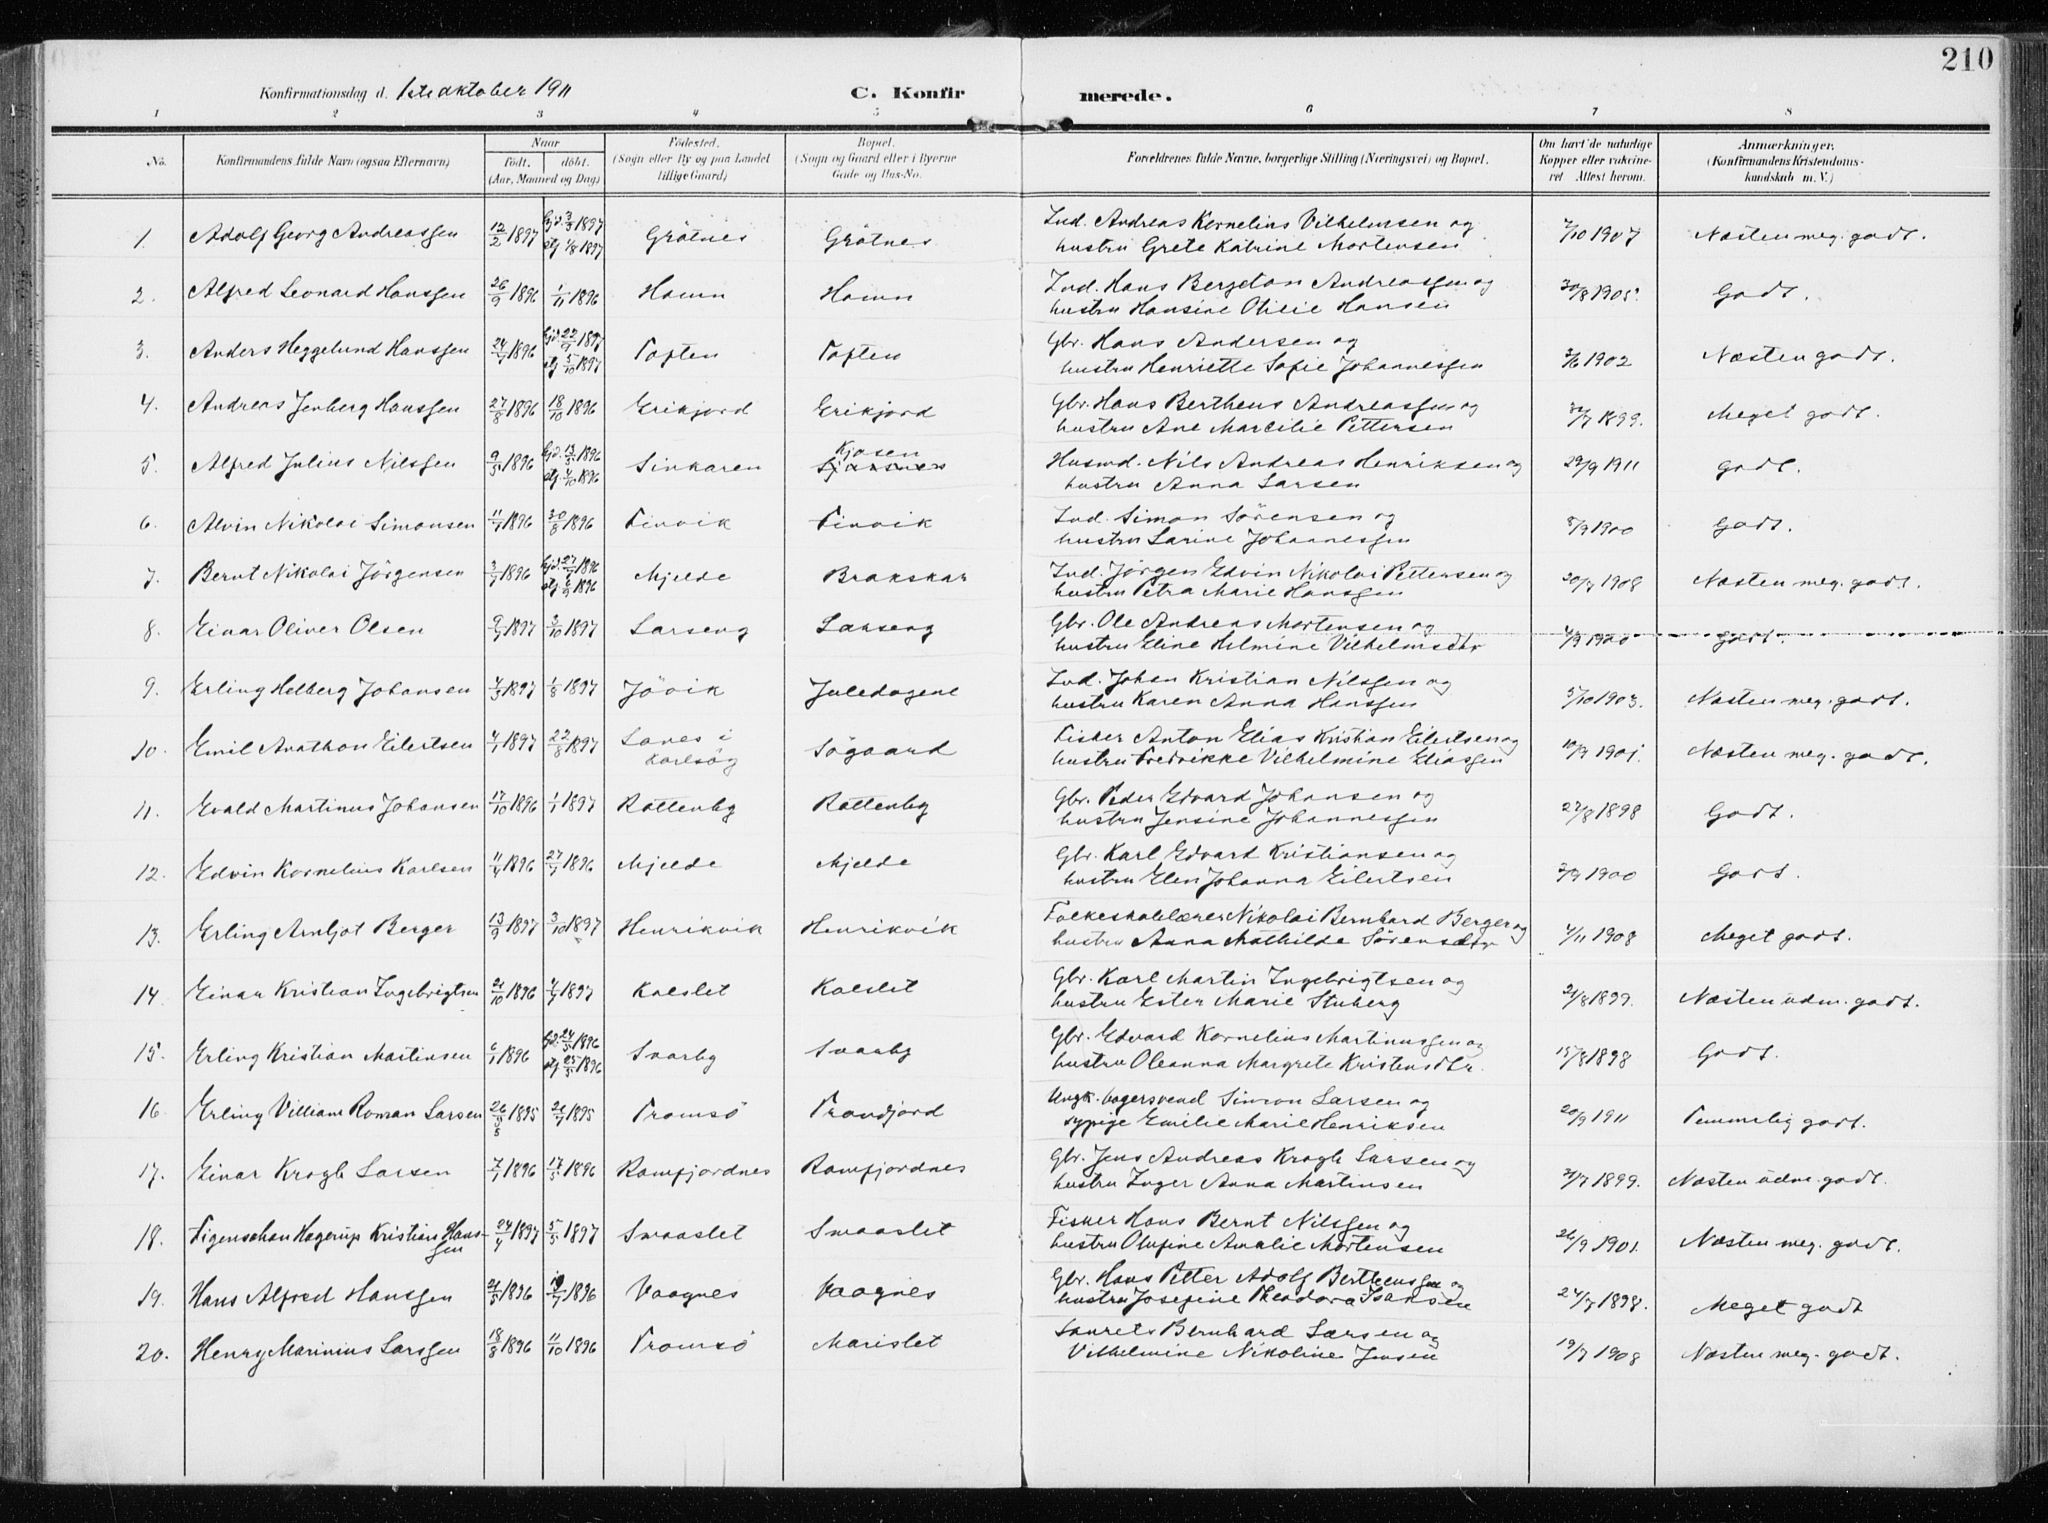 210
Konfirmationsdag d. 1ste oktober 1911 C. Konfirmerede.
1 2 3 4 5 6 7 8
No. Konfirmandens fulde Navn (ogsaa Efternavn) Naar født. døbt. (Aar, Maaned og Dag) Fødested. (Sogn eller By og paa Landet tillige Gaard) Bopæl. (Sogn og Gaard eller i Byerne Gade og Hus-No. Forældrenes fulde Navne, borgerlige Stilling (Næringsvei) og Bopæl. Om havt de naturlige Kopper eller vakcineret Attest herom. Anmærkninger. (Konfirmandens Kristendomskundskab m. V.)
1. Adolf Georg Andreassen 12/2 1897 hjd. 3/3 1897 Grötnes Grötnes Ind. Andreas Kornelius Vilhelmsen og 7/10 1907 Næsten meg. godt.
stj 1/8 1897 hustru Grete Katrine Mortensen
2. Alfred Leonard Hanssen 26/9 1896 1/11 1896 Hamn Hamn Ind. Hans Bergeton Andreassen og 30/8 1905. Godt.
hustru Hansine Otilie Hansen
3. Anders Heggelund Hanssen 24/7 1896 hjd. 22/9 1897 Toften Toften Gbr. Hans Andersen og 3/6 1902 Næsten godt.
stj. 5/10 1897 hustru Henriette Sofie Johannessen
4. Andreas Jenberg Hanssen 27/8 1896 18/10 1896 Erikjord Erikjord Gbr. Hans Bertheus Andreassen og 1899. Meget godt.
hustru Ane Marcilie Pettersen
5. Alfred Julius Nilssen 9/5 1896 hjd. 13/5 1896 Sinkaren Kjosen Husmd. Nils Andreas Henriksen og 29/9 1911 godt.
stj. 4/10 1896 hustru Anna Larsen
6. Alvin Nikolai Simonsen 11/7 1896 30/8 1896 Finvik Finvik Ind. Simon Sörensen og 8/9 1900 Godt.
hustru Larine Johannessen
7. Bernt Nikolai Jörgensen 3/7 1896 hjd. 27/7 1896 Mjelde Brakskar Ind. Jörgen Edvin Nikolai Pettersen og 20/7 1908 Næsten meg. godt.
stj 6/9 1896 hustru Petra Marie Hanssen
8. Einar Oliver Olsen 9/7 1897 3/10 1897 Larseng Larseng Gbr. Ole Andreas Mortensen og 4/9 1900 godt.
hustru Eline Helmine Vilhelmsdtr
9. Erling Helberg Johansen 4/3 1897 1/8 1897 Jövik Juledagene Ind. Johan Kristian Nilssen og 5/10 1903. Næsten meg. godt.
hustru Karen Anna Hanssen
10. Emil Anathon Eilertsen 4/7 1897 22/8 1897 Lanes i Sögaard Fisker Anton Elias Kristian Eilertsen og 10/9 1901. Næsten meg. godt.
Karlsög hustru Fredrikke Vilhelmine Eliassen
11. Evald Martinus Johansen 17/10 1896 1/1 1897 Rottenby Rottenby Gbr. Peder Edvard Johansen og 27/8 1898 Godt.
hustru Jensine Johannessen
12. Edvin Kornelius Karlsen 11/4 1896 27/7 1896 Mjelde Mjelde Gbr. Karl Edvard Kristiansen og 3/9 1900 Godt.
hustru Elen Johanna Eilertsen
13. Erling Arnljot Berger 13/9 1897 3/10 1897 Henrikvik Henrikvik Folkeskolelærer Nikolai Bernhard Berger og 7/11 1908 Meget godt.
hustru Anna Mathilde Sörensdtr
14. Einar Kristian Ingebrigtsen 21/10 1896 4/7 1897 Kaslet Kaslet Gbr. Karl Martin Ingebrigtsen og 21/8 1899. Næsten udm. godt.
hustru Ester Marie Stuberg
15. Erling Kristian Martinsen 6/1 1896 hjd. 24/5 1896 Svarby Svarby Gbr. Edvard Kornelius Martinussen og 15/8 1898 Godt.
stj 25/5 1896 hustru Oleanna Margrete Kristensdtr.
16. Erling Villiam Roman Larsen 26/3 1895 21/7 1895 Tromsö Trondjord Ungk. bagersvend Simon Larsen og 20/9 1911 Temmelig godt.
5 sypige Emilie Marie Henriksen
17. Einar Krogh Larsen 7/1 1896 17/5 1896 Ramfjordnes Ramfjordnes Gbr. Jens Andreas Krogh Larsen og 21/7 1899. Næsten udm. godt.
hustru Inger Anna Martinsen
18. Figenschau Hagerup Kristian Hans- 24/4 1897 5/5 1897 Smaaslet Smaaslet Fisker Hans Bernt Nilssen og 26/9 1901. Næsten meg. godt.
sen hustru Olufine Amalie Mortensen
19. Hans Alfred Hanssen 21/5 1896 19/7 1896 Vaagnes Vaagnes Gbr. Hans Petter Adolf Bertheussen og 24/7 1898. Meget godt
hustru Josefine Theodora Isaksen
20. Henry Marinius Larssen 18/8 1896 11/10 1896 Tromsö Marislet Laurets Bernhard Larsen og 19/7 1908 Næsten meg. godt.
Vilhelmine Nikoline Jensen